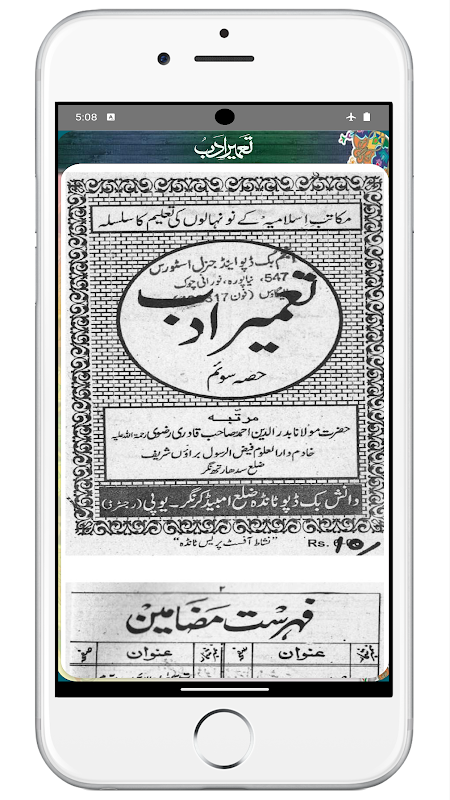 5:08
تعمیر ادب
مکاتب اسلامیہ کے نونہالوں کی تعلیم کا سلسلہ
بک ڈپو اینڈ جنرل اسٹورس
547، نیاپورہ، نورانی چوک
تعمیر ادب
حصہ سوئم
مرتبہ
حضرت مولانا بدر الدین احمد صاحب قادری رضوی رحمۃ اللہ علیہ
خادم دارالعلوم فیض الرسول براؤں شریف
ضلع سدھارتھ نگر
دانش بک ڈپو ٹانڈہ ضلع امبیڈکر نگر۔ یوپی (رجسٹرڈ)
"نشاط آفسٹ پریس ٹانڈہ" Rs.
۲
فہرست مضامین
عنوان عنوان